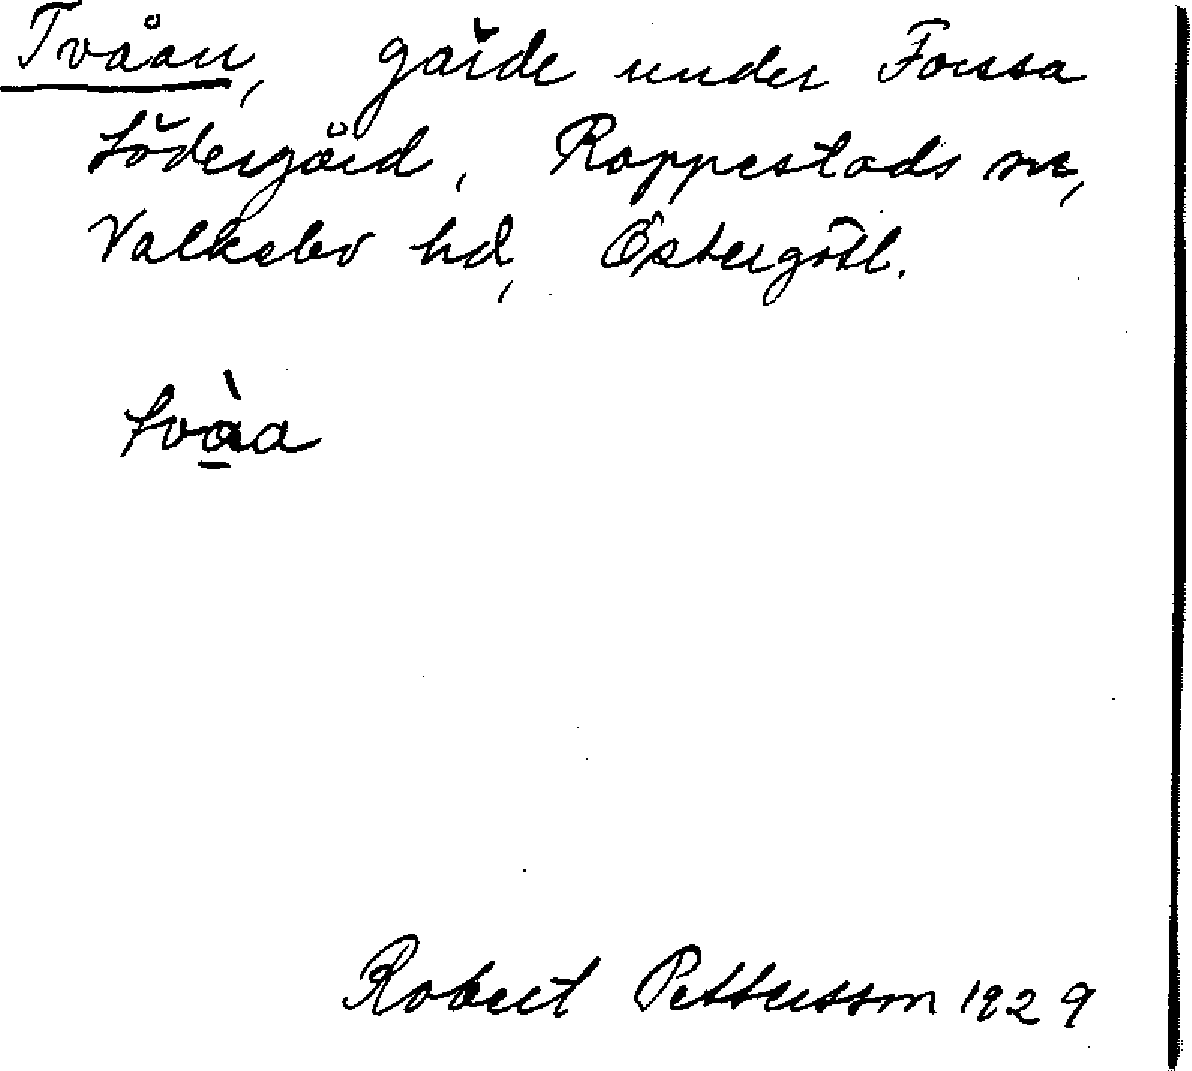 Tvåan, gärde under Forssa
Södergård, Rappestads sn,
Valkebo hd, Östergötl.
tvàa
Robert Pettersson 1929